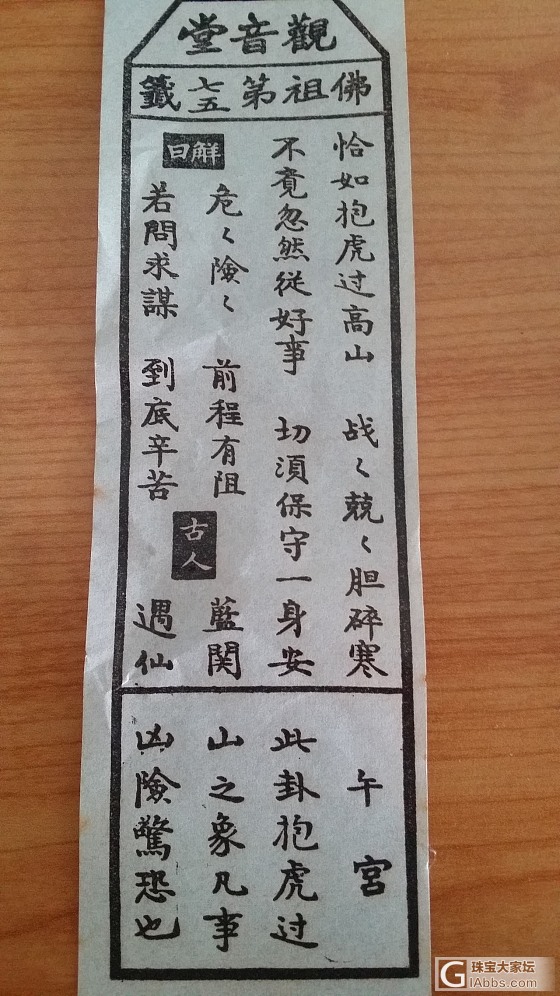 觀音堂
佛祖第七五籤
恰如抱虎过高山 战〻兢〻胆碎寒
不竟忽然從好事 切湏保守一身安
解曰
危〻險〻 前程有阻
若問求謀 到底辛苦
古人
藍関
遇仙
午宮
此卦抱虎过
山之象凡事
凶險驚恐也
珠宝大家坛
GIAbbs.com